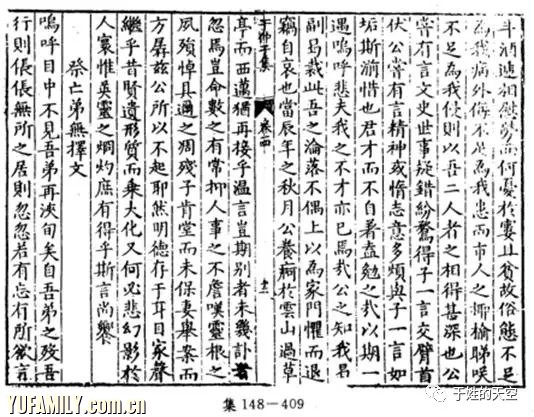 斗酒遽相慰勞而何憂於窶且貧故俗態不足
為我病外侮不足為我患而市人之揶榆睇咲
不足為我侵則以吾二人者之相得甚深也公
嘗有言文史世事疑錯紛騖得子一言交臂首
伏公嘗有言精神或惰志意多頗與子一言如
垢斯湔惜也君才而不自著盍勉之哉以期一
遇嗚呼悲夫我之不才亦已焉哉公之知我曷
副曷裁此吾之淪落不偶上以為家門懼而退
竊自哀也當辰年之秋月公養痾於雲山過草
于仲子集 卷四
亭而西邁猶再接乎温言豈期別者未幾訃者
忽焉豈命數之有常抑人事之不詹嘆靈根之
夙殞悼具邇之凋殘子肯堂而未保妻舉案而
方孱茲公所以不起耶然明德存于耳目家聲
繼乎昔賢遺形質而乘大化又何必悲幻影於
人寰惟英靈之炯灼庶有得乎斯言尚饗
祭亡弟無擇文
嗚呼目中不見吾弟再浹旬矣自吾弟之歿吾
行則倀倀無所之居則忽忽若有忘有所欲言
集 148－409
YUFAMILY.com.cn
于姓的天空